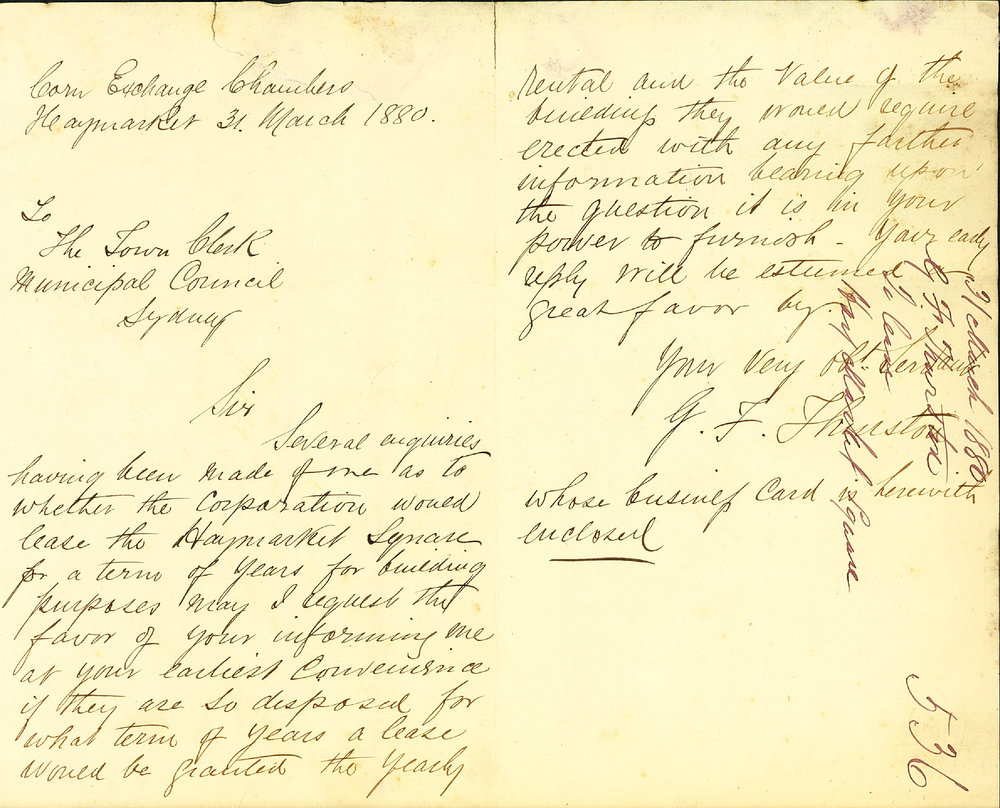 Corn Exchange Chambers
Haymarket 31 March 1880.
To
The Town Clerk
Municipal Council
Sydney
Sir
Several enquiries
having been made of me as to
whether the Corporation would
lease the Haymarket Square
for a term of years for building
purposes may I request the
favor of your informing me
at your earliest convenience
if they are so disposed for
what term of years a lease
would be granted the yearly
rental and the value of the
building they would require
erected with any farther
information bearing upon
the question it is in your
power to furnish - Your early
reply will be estumed
great favor by.
Your very obt. Servant
G. F. Thurston
whose business Card is herewith
enclosed
31 March 1880
G F Thurston
To lease
Haymarket Square
536